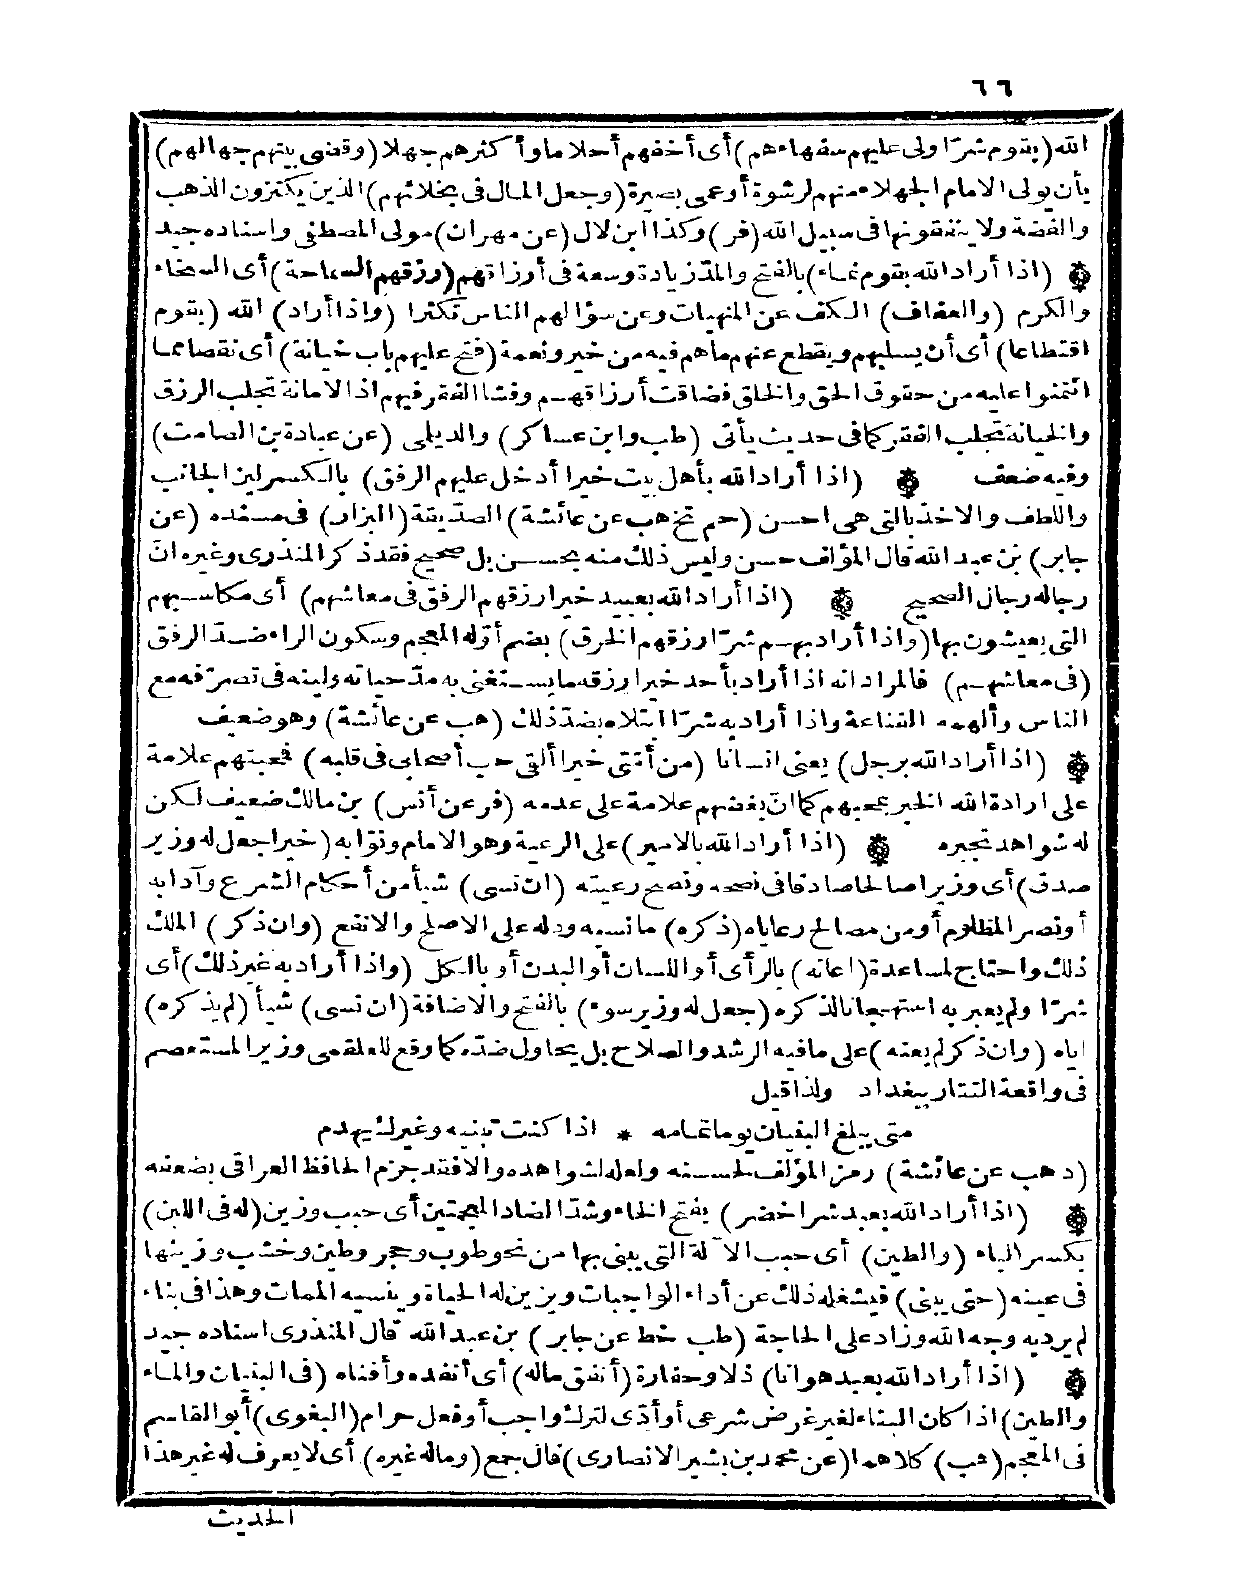 ٦٦
الله (بقوم شرّا ولى عليهم سفهاءهم) أى أخفهم أحلاما وأكثرهم جهلا (وقضى بينهم جهالهم)
بأن يولى الامام الجهلاء منهم لرشوة أوعمى بصيرة (وجعل المال فى بخلائهم) الذين يكتنزون الذهب
والفضة ولا ينفقونها فى سبيل الله (فر) وكذا ابن لال (عن مهران) مولى المصطفى واسناده جيد
(اذا أراد الله بقوم نماء) بالفتح والمدّ زيادة وسعة فى أرزاقهم (رزقهم السماحة) أى السخاء
والكرم (والعفاف) الكف عن المنهيات وعن سؤالهم الناس تكثرا (واذا أراد) الله (بقوم
اقتطاعا) أى أن يسلبهم ويقطع عنهم ما هم فيه من خير ونعمة (فتح عليهم باب خيانة) أى نقصا مما
ائتمنوا عليه من حقوق الحق والخلق فضاقت أرزاقهم وفشا الفقر فيهم اذ الامانة تجلب الرزق
والخيانة تجلب الفقر كما فى حديث يأتى (طب وابن عساكر) والديلى (عن عبادة بن الصامت)
وفيه ضعف (اذا أراد الله بأهل بيت خيرا أدخل عليهم الرفق) بالكسر لين الجانب
واللطف والاخذ بالتى هى احسن (حم تخ هب عن عائشة) الصدّيقة (البزار) فى مسنده (عن
جابر) بن عبد الله قال المؤلف حسن وليس ذلك منه بحسن بل صحيح فقد ذكر المنذرى وغيره انّ
رجاله رجال الصحيح (اذا أراد الله بعبيد خيرا رزقهم الرفق فى معاشهم) أى مكاسبهم
التى يعيشون بها (واذا أراد بهم شرّا رزقهم الخرق) بضم أوّله المعجم وسكون الراء ضدّ الرفق
(فى معاشهم) فالمراد انه اذا أراد بأحد خيرا رزقه ما يستغنى به مدّ حياته ولينه فى تصرّفه مع
الناس وألهمه القناعة واذا أراد به شرّا ابتلاه بضدّ ذلك (هب عن عائشة) وهو ضعيف
(اذا أراد الله برجل) يعنى انسانا (من أمّتى خيرا ألقى حب أصحابى فى قلبه) فمحبتهم علامة
على ارادة الله الخير بمحبهم كما انّ بغضهم علامة على عدمه (فر عن أنس) بن مالك ضعيف لكن
له شواهد تجبره (اذا أراد الله بالامير) على الرعية وهو الامام ونوّابه (خيرا جعل له وزير
صدق) أى وزيرا صالحا صادقا فى نصحه ونصح رعيته (ان نسى) شيأ من أحكام الشرع وآدابه
أو نصر المظلوم أو من مصالح رعاياه (ذكره) ما نسيه ودله على الاصلح والانفع (وان ذكر) الملك
ذلك واحتاج لمساعدة (اعانه) بالرأى أو اللسان أو البدن أو بالكل (واذا أراد به غير ذلك) أى
شرّا ولم يعبر به استهجانا لذكره (جعل له وزير سوء) بالفتح والاضافة (ان نسى) شيأ (لم يذكره)
اياه (وان ذكر لم يعنه) على ما فيه الرشد والصلاح بل يحاول ضدّه كما وقع للعلقمى وزير المستعصم
فى واقعة التتار ببغداد ولذا قيل
متى يبلغ البنيان يوما تمامه * اذا كنت تبنيه وغيرك يهدم
(د هب عن عائشة) رمز المؤلف لحسنه ولعله لشواهده والا فقد جزم الحافظ العراقى بضعفه
(اذا أراد الله بعبد شرا خضر) بفتح الخاء وشدّ الضاد المعجمتين أى حبب وزين (له فى اللبن)
بكسر الباء (والطين) أى حبب الآلة التى يبنى بها من نحو طوب وحجر وطين وخشب وزينها
فى عينه (حتى يبنى) فيشغله ذلك عن أداء الواجبات ويزين له الحياة وينسيه الممات وهذا فى بناء
لم يرد به وجه الله وزاد على الحاجة (طب خط عن جابر) بن عبد الله قال المنذرى اسناده جيد
(اذا أراد الله بعبد هوانا) ذلا وحقارة (أنفق ماله) أى أنفده وأفناه (فى البنيان والماء
والطين) اذا كان البناء لغير غرض شرعى أو أدّى لترك واجب أو فعل حرام (البغوى) أبو القاسم
فى المعجم (هب) كلاهما (عن محمد بن بشير الانصارى) قال جمع (وماله غيره) أى لا يعرف له غير هذا
الحديث